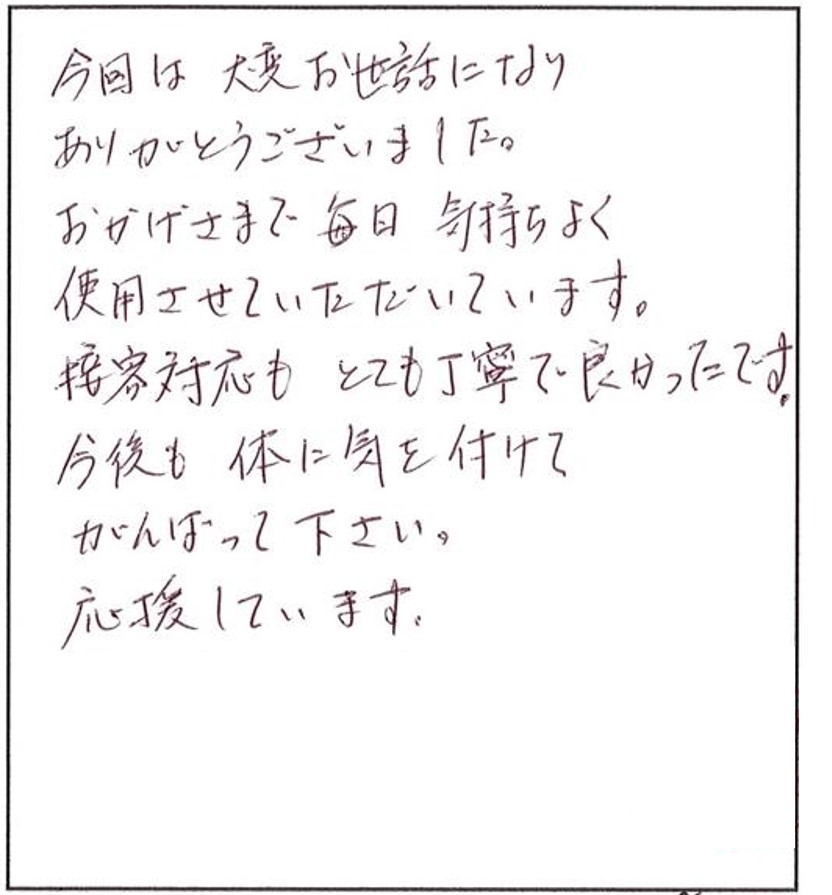 今回は 大変お世話になり
ありがとうございました。
おかげさまで 毎日 気持ちよく
使用させていただいています。
接客対応も とても丁寧で良かったです。
今後も 体に気を付けて
がんばって下さい。
応援しています.